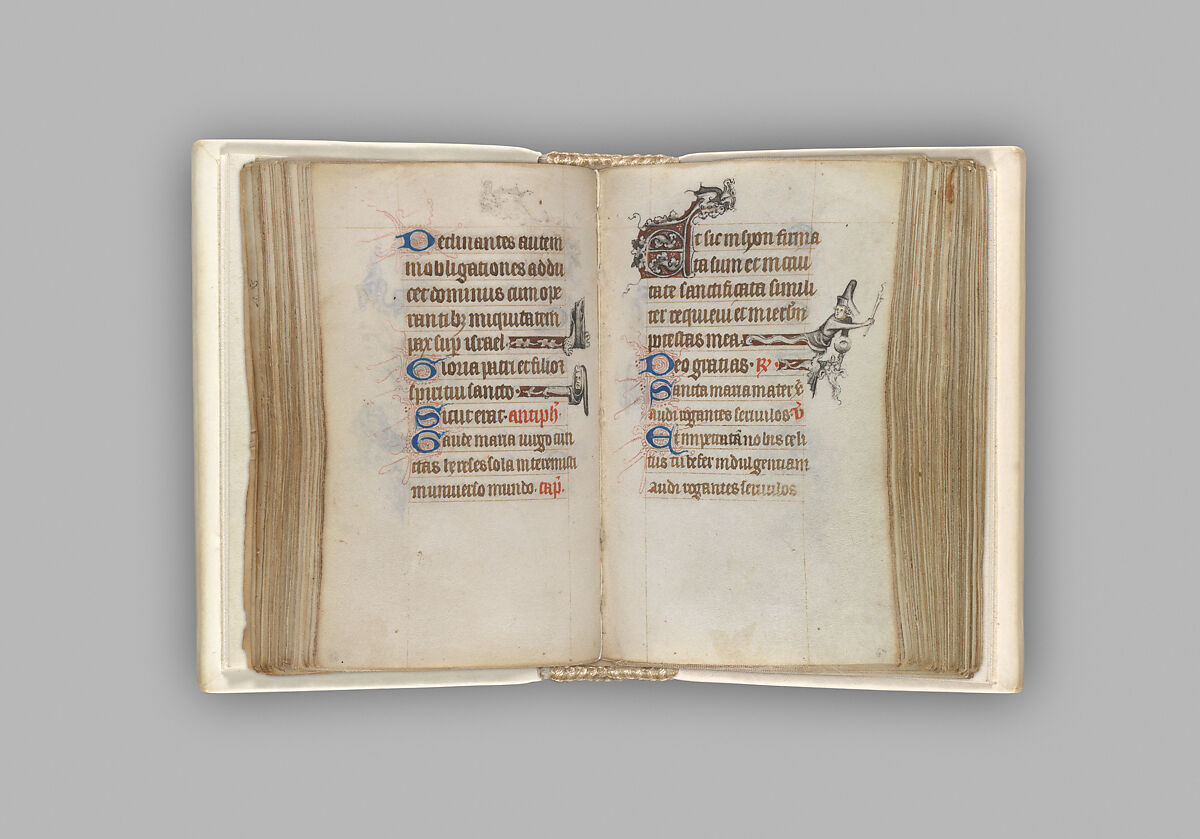 Declinantes autem
in obligationes addu
cet dominus cum ope
rantibꝫ iniquitatem
pax sup israel
Gloria patri et filio ⁊
spiritui sancto
Sicut erat antiph̃.
Gaude maria uirgo cun
ctas hereses sola interemisti
in uniuerso mundo. cap̃.
Et sic in syon firma
ta sum et in ciui
tate sanctificata simili
ter requieui et in ierl̃m
potestas mea.
Deo gratias. R̃
Sancta maria mater x̃
audi rogantes seruulos ṽ
Et impetratã nobis celi
tus tu defer indulgentiam
audi rogantes seruulos